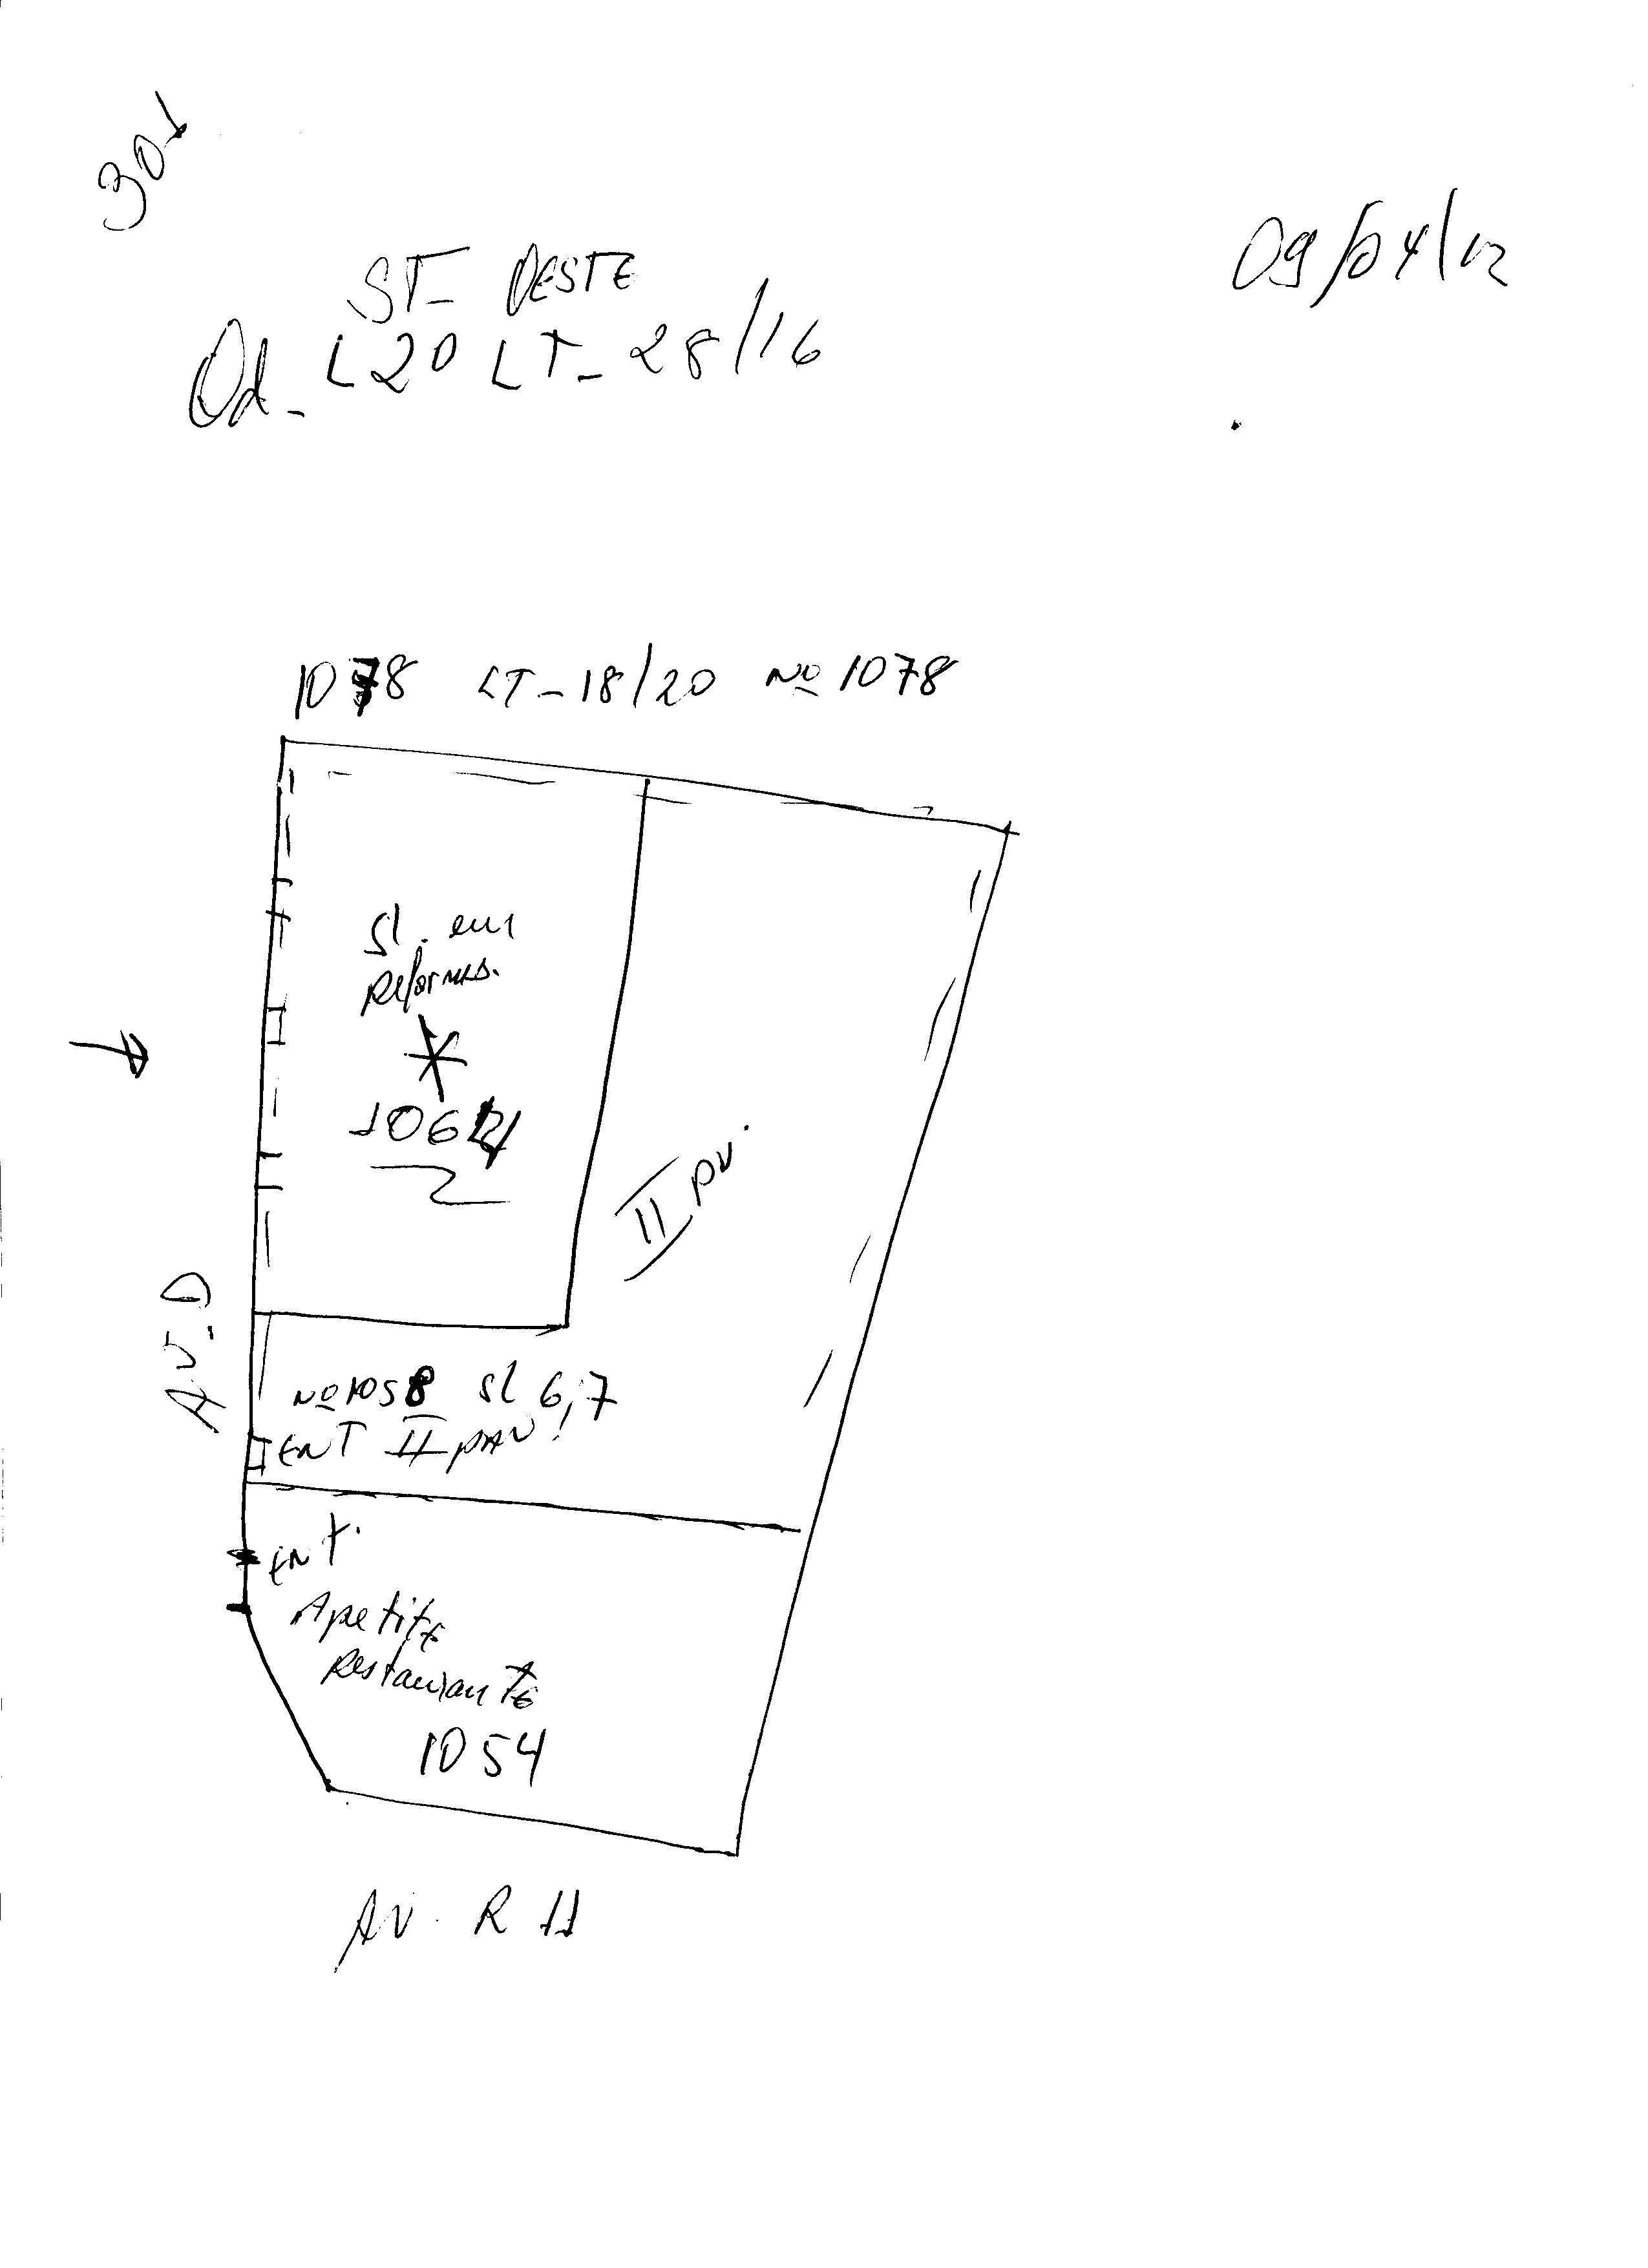 301
09/04/12
ST- OESTE
Qd- L20 LT- 28/16
1078 LT-18/20 Nº 1078
Sl. em
Reformas.
II pv.
AV-D
Nº 1058 sl 6,7
ENT II PAV!
ENT.
Apetite
Restaurante
1054
AV. R 11